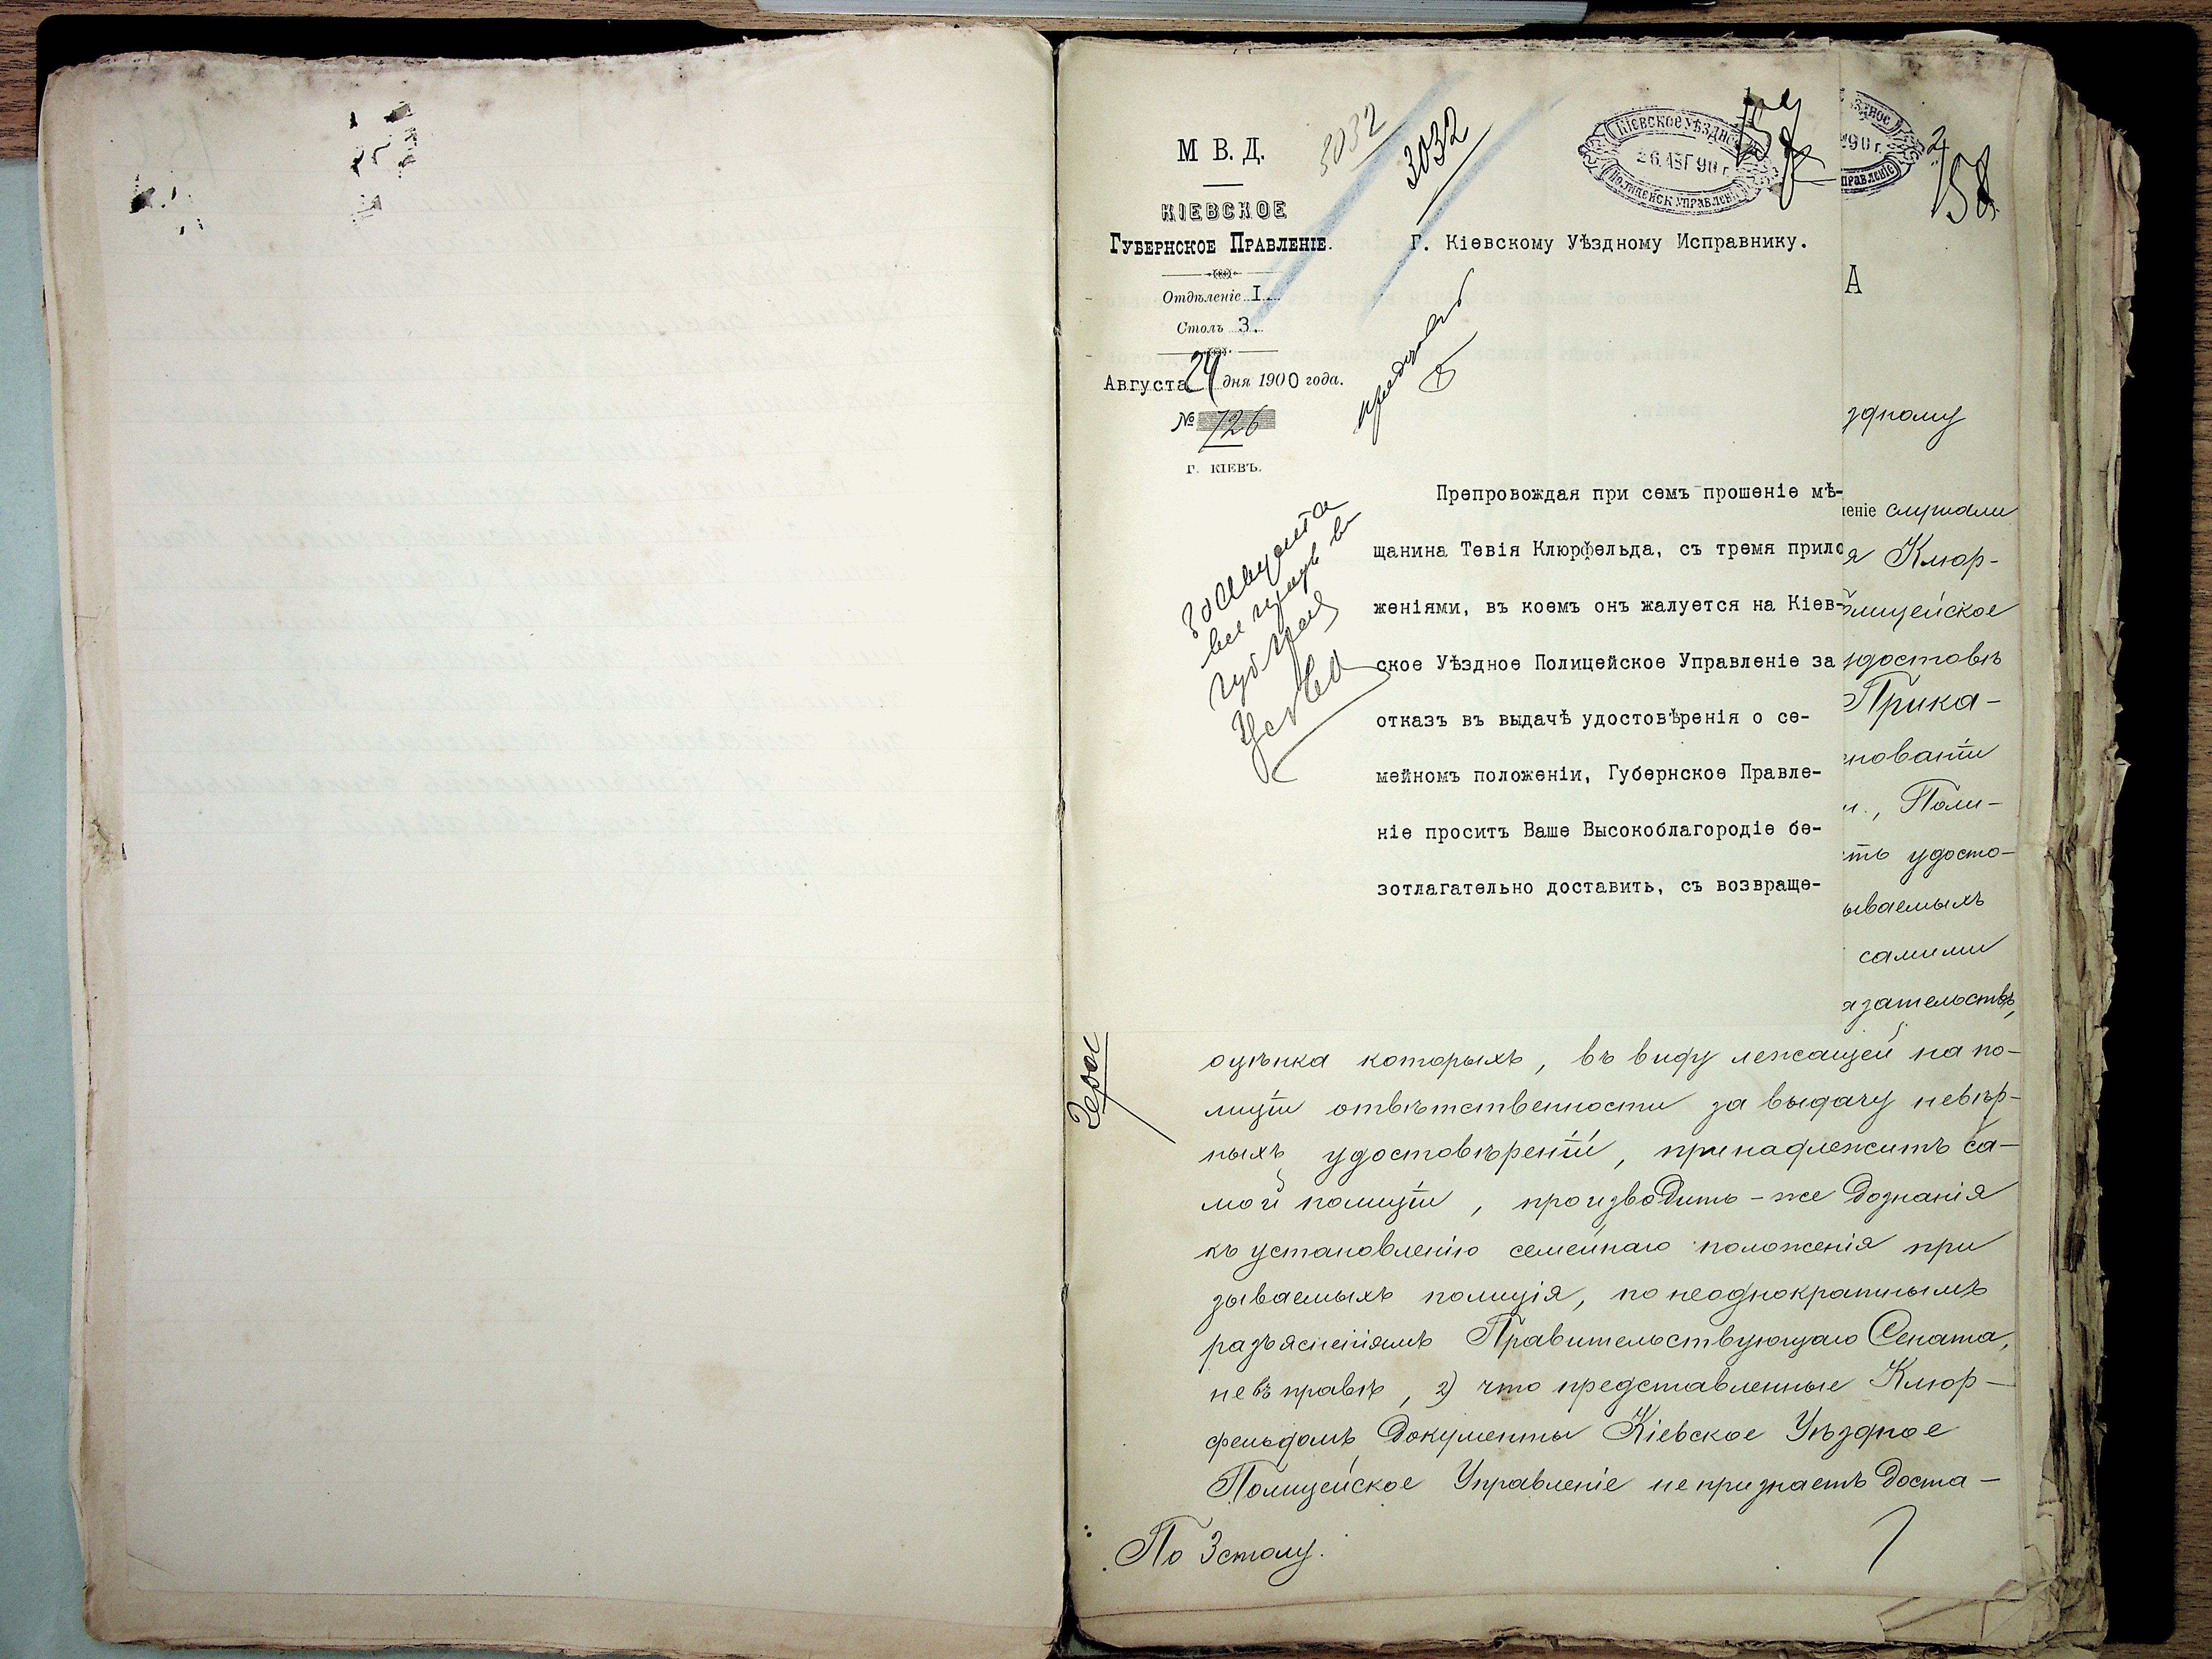 М. В. Д.
КІЕВСКОЕ
ГУБЕРНСКОЕ ПРАВЛЕНІЕ.
Отдѣленіе I.
Столъ 3.
Августа 24 дня 1900 года.
№ 726
Г. КІЕВЪ.
3032
3032
КІЕВСКОЕ УѢЗДНОЕ
26 АВГ 900 г.
ПОЛИЦЕЙСК УПРАВЛЕНІЕ
157
Г. Кіевскому Уѣздному Исправнику.
Препровождая при семъ прошеніе мѣ-
щанина Тевія Клюрфельда, съ тремя прило
женіями, въ коемъ онъ жалуется на Кіев-
ское Уѣздное Полицейское Управленіе за
отказъ въ выдачѣ удостовѣренія о се-
мейномъ положеніи, Губернское Правле-
ніе проситъ Ваше Высокоблагородіе бе-
зотлагательно доставить, съ возвраще-
30 Августа
УѢЗДНОЕ
900 г.
УПРАВЛЕНІЕ
158
А
здному
леніе слушали
я Клюр-
олицейское
удостовѣ
Прика-
снованіи
и., Поли-
сть удосто-
ываемыхъ
самими
азательствъ,
оцѣнка которыхъ, въ виду лежащей на по-
лиціи отвѣтственности за выдачу невѣр-
ныхъ удостовѣреній, принадлежитъ са-
мой полиціи, производить-же дознанія
къ установленію семейнаго положенія при
зываемыхъ полиція, по неоднократнымъ
разъясненіямъ Правительствующаго Сената,
не въ правѣ, 2) что представленные Клюр-
фельдомъ документы Кіевское Уѣздное
Полицейское Управленіе не признаетъ доста-
По 3 столу.